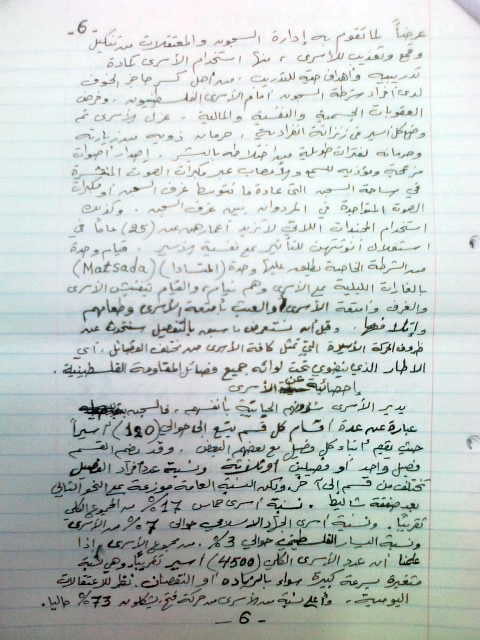 6-
عرضاً لما تقوم به إدارة السجون والمعتقلات من تنكيل
وقمع وتعذيب للأسرى، منها استخدام الأسرى كمادة
تدريبية وأهداف حية للتدريب، من أجل كسر حاجز الخوف
لدى أفراد شرطة السجون أمام الأسرى الفلسطينيون. وفرض
العقوبات الجسمية والنفسية والمالية. عزل الأسرى تم
وضع كل أسير في زنزانة انفرادية، حرمان ذويه من زيارته
وحرمانه لفترات طويلة من اختلاطه بالبشر. إصدار أصوات
مزعجة ومؤذية للسمع والأعصاب عبر مكبرات الصوت المنتشرة
في ساحة السجن التي عادة ما تتوسط غرف السجن أو مكبرات
الصوت المتواجدة في المردوان بين غرف السجن. وكذلك
استخدام المجندات اللاتي لا تزيد أعمارهن عن (25) عاماً في
استغلال أنوثتهن للتأثير على نفسية الأسير. قيام وحدة
من الشرطة الخاصة يطلق عليها وحدة (المتسادا) (Matsada)
بالغارات الليلية على الأسرى وهم نيام، والقيام بتفتيش الأسرى
والغرف وأمتعة الأسرى والعبث بأمتعة الأسرى وطعامهم
وإتلافها. وقبل أن نستعرض ما سبق بالتفصيل سنتحدث عن
ظروف الحركة الأسيرة التي تمثل كافة الأسرى من مختلف الفصائل، أي
الاطار الذي ينضوي تحت لوائه جميع فصائل المقاومة الفلسطينية.
إحصائية عن الأسرى
يدير الأسرى شؤونهم الحياتية بأنفسهم، فالسجن
عبارة عن عدة أقسام كل قسم يتسع إلى حوالي (120) أسيراً
حيث يقيم أبناء كل فصيل مع بعضهم البعض. وقد يضم القسم
فصيل واحد أو فصيلين أو ثلاثة ونسبة عدد أفراد الفصيل
تختلف من قسم إلى آخر ولكن النسبة العامة موزعة على النحو التالي
بعد صفقة شاليط. نسبة أسرى حماس 17% من المجموع الكلي
تقريباً. ونسبة أسرى الجهاد الاسلامي حوالي 7% من الأسرى
ونسبة اليسار الفلسطيني حوالي 3% من مجموع الأسرى. إذا
علمنا أن عدد الأسرى الكلي (4500) أسير تقريباً وهي نسبة
متغيرة بسرعة كبيرة سواء بالزيادة أو النقصان نظراً للاعتقالات
اليومية. وأعلى نسبة من الأسرى من حركة فتح ويشكلون 73% حالياً.
- 6 -